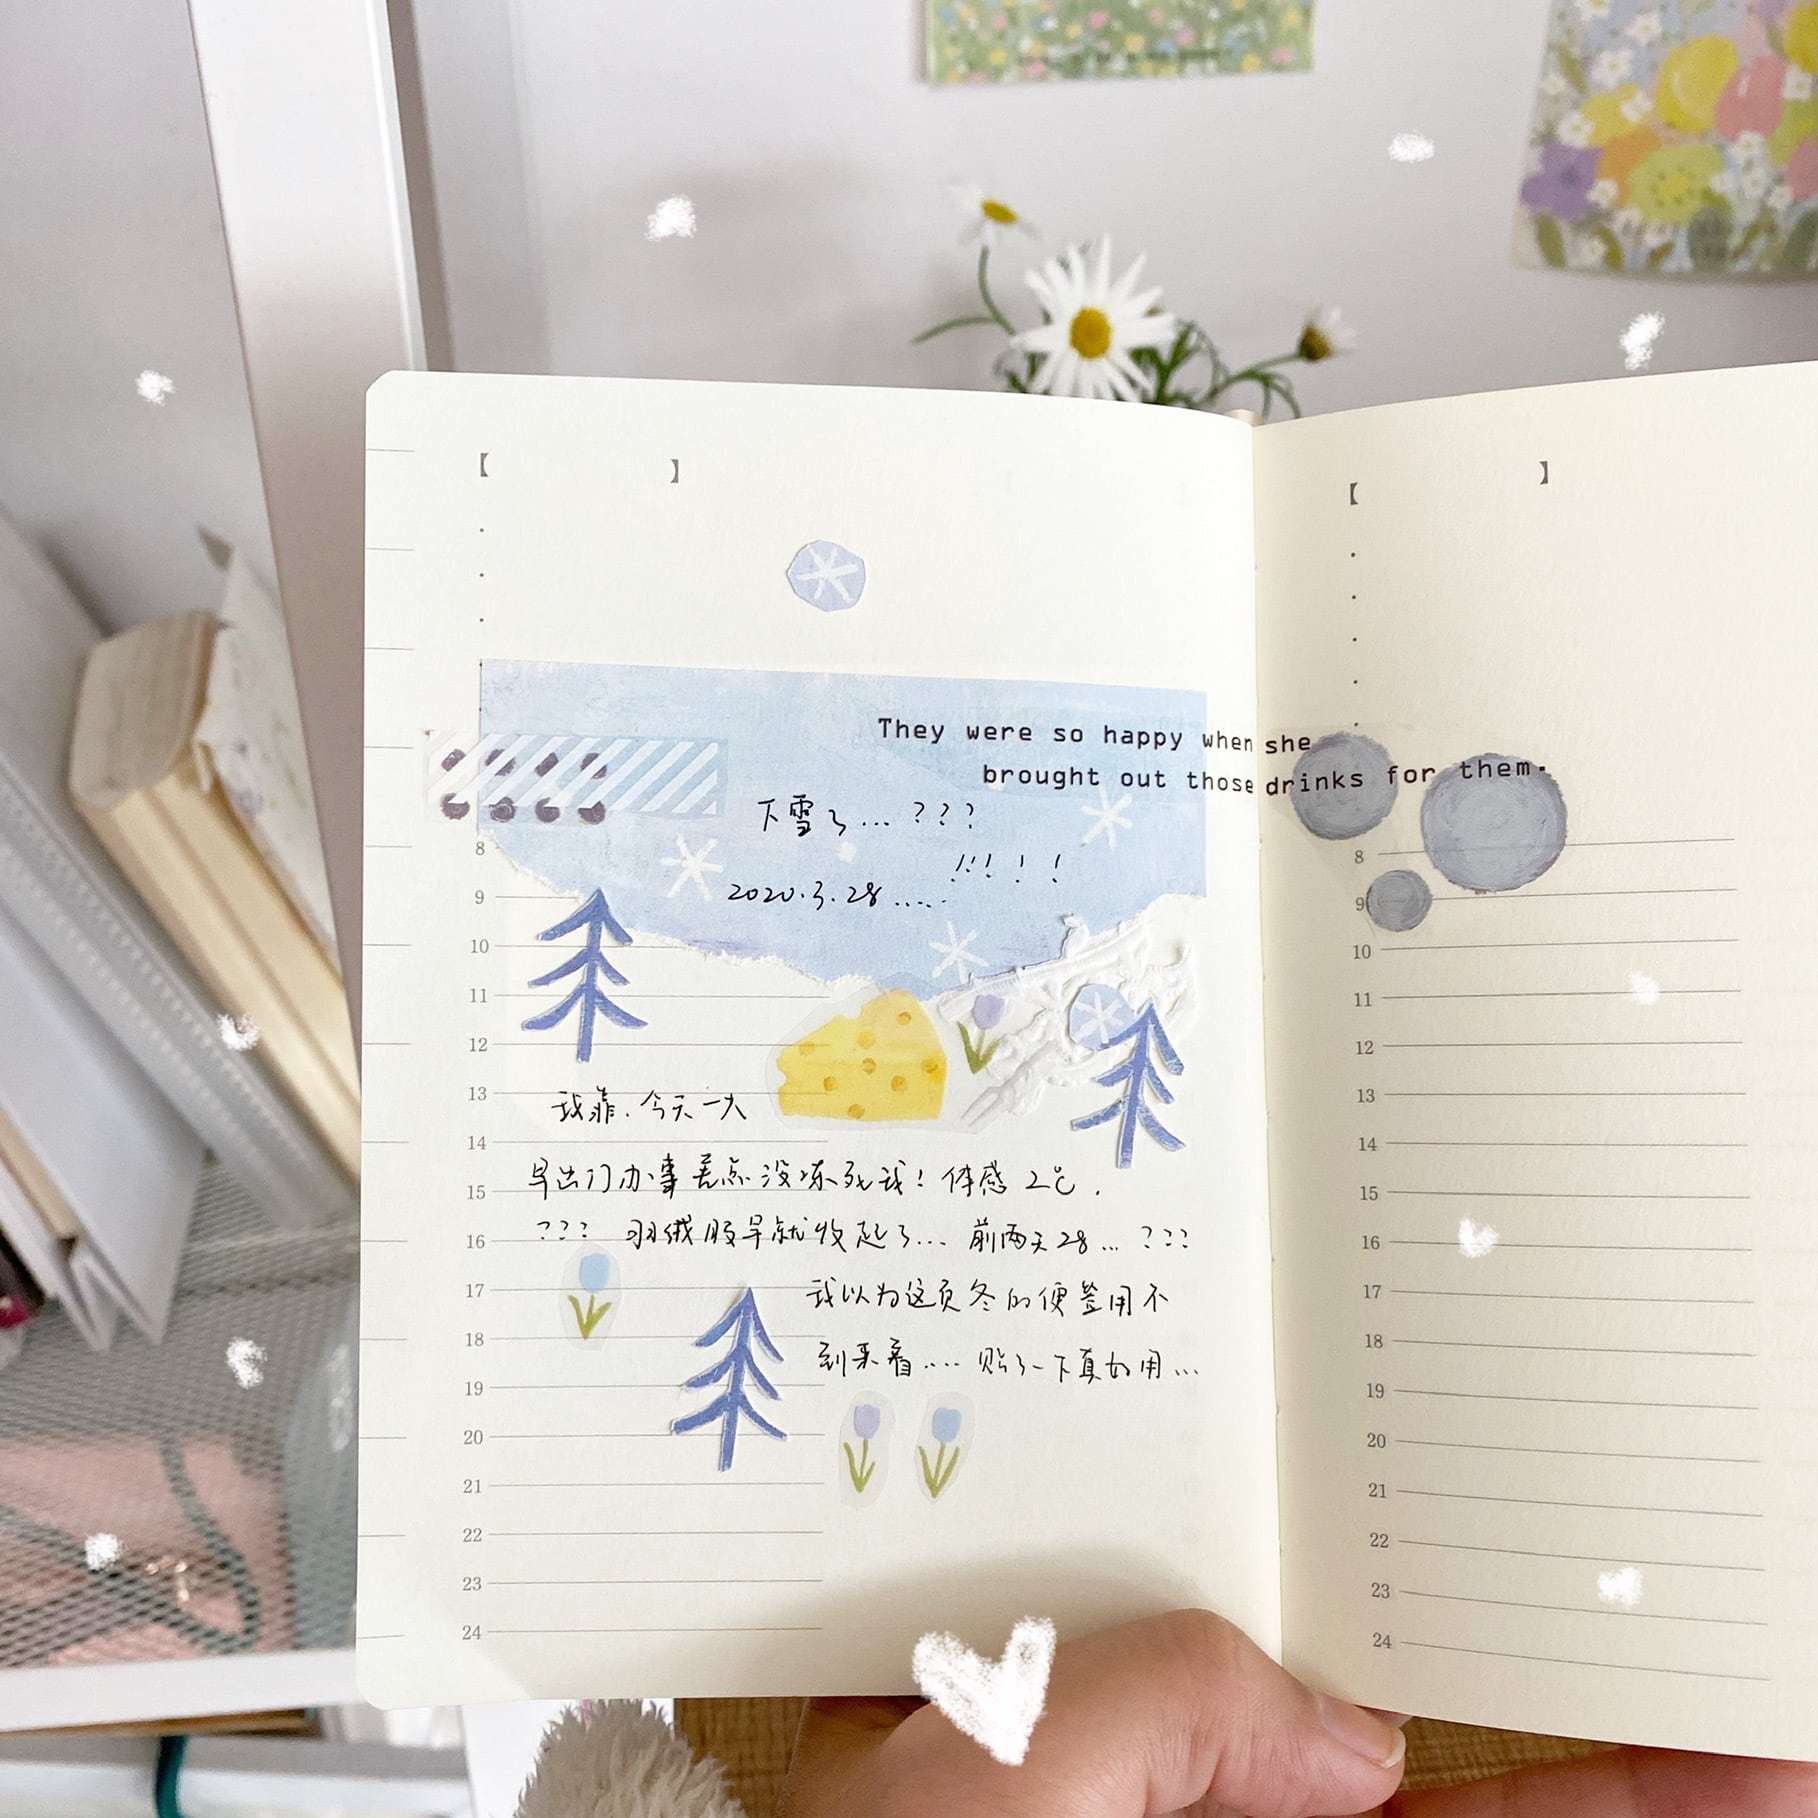 【 】
【 】
They were so happy when she
brought out those drinks for them.
下雪了...???
!!!!!
2020.3.28.....
我靠.今天一大
早出门办事差点没冻死我!体感2℃.
???羽绒服早就收起了...前两天28...???
我以为这页冬的便签用不
到来着....贴了一下真好用...
8
9
10
11
12
13
14
15
16
17
18
19
20
21
22
23
24
8
9
10
11
12
13
14
15
16
17
18
19
20
21
22
23
24